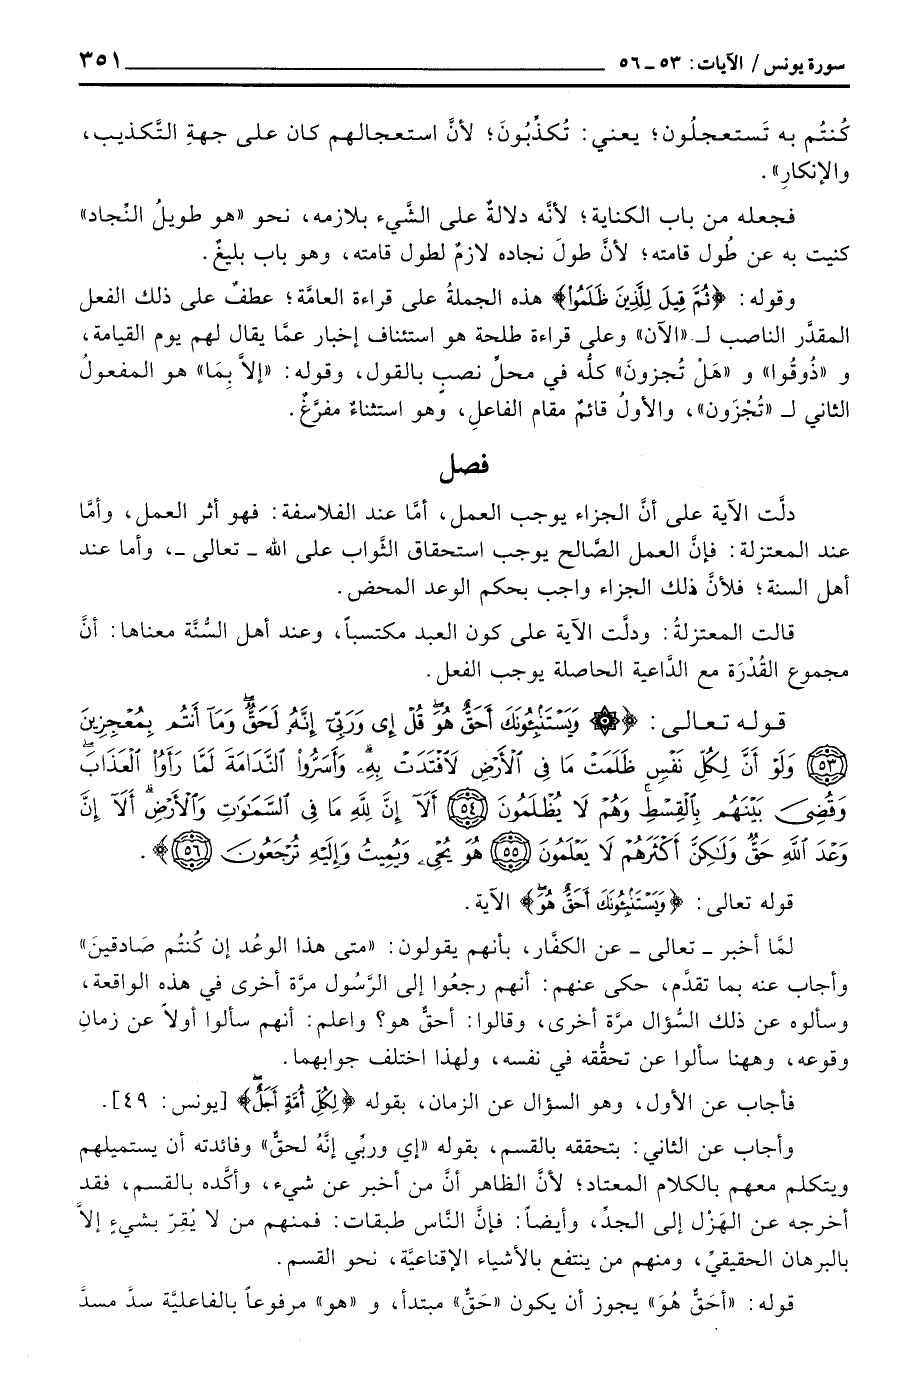 سورة يونس / الآيات: ٥٣ ـ ٥٦ ٣٥١
كُنتُم به تَستعجلُون؛ يعني: تُكذِّبُونَ؛ لأنَّ استعجالهم كان على جهةِ التَّكذيب،
والإنكارِ».
فجعله من باب الكناية؛ لأنَّه دلالةٌ على الشَّيء بلازمه، نحو «هو طويلُ النِّجاد»
كنيت به عن طُول قامته؛ لأنَّ طولَ نجاده لازمٌ لطول قامته، وهو باب بليغٌ.
وقوله: ﴿ثُمَّ قِيلَ لِلَّذِينَ ظَلَمُواْ﴾ هذه الجملةُ على قراءة العامَّة؛ عطفٌ على ذلك الفعل
المقدَّر الناصب لـ «الآن» وعلى قراءة طلحة هو استئناف إخبار عمَّا يقال لهم يوم القيامة،
و «ذُوقُوا» و «هَلْ تُجزونَ» كلُّه في محلِّ نصبٍ بالقول، وقوله: «إلاَّ بِمَا» هو المفعولُ
الثاني لـ «تُجْزَون»، والأولُ قائمٌ مقام الفاعلِ، وهو استثناءٌ مفرَّغٌ.
فصل
دلَّت الآية على أنَّ الجزاء يوجب العمل، أمَّا عند الفلاسفة: فهو أثر العمل، وأمَّا
عند المعتزلة: فإنَّ العمل الصَّالح يوجب استحقاق الثَّواب على الله ـ تعالى ـ، وأما عند
أهل السنة؛ فلأنَّ ذلك الجزاء واجب بحكم الوعد المحض.
قالت المعتزلةُ: ودلَّت الآية على كون العبد مكتسباً، وعند أهل السُّنَّة معناها: أنَّ
مجموع القُدْرَة مع الدَّاعية الحاصلة يوجب الفعل.
قوله تعالى: ﴿وَيَسْتَنْبِئُونَكَ أَحَقٌّ هُوَ قُلْ إِى وَرَبِّىٓ إِنَّهُۥ لَحَقٌّ وَمَآ أَنتُم بِمُعْجِزِينَ
(٥٣) وَلَوْ أَنَّ لِكُلِّ نَفْسٍ ظَلَمَتْ مَا فِى ٱلْأَرْضِ لَٱفْتَدَتْ بِهِۦ وَأَسَرُّواْ ٱلنَّدَامَةَ لَمَّا رَأَوُاْ ٱلْعَذَابَ
وَقُضِىَ بَيْنَهُم بِٱلْقِسْطِ وَهُمْ لَا يُظْلَمُونَ (٥٤) أَلَآ إِنَّ لِلَّهِ مَا فِى ٱلسَّمَٰوَٰتِ وَٱلْأَرْضِ أَلَآ إِنَّ
وَعْدَ ٱللَّهِ حَقٌّ وَلَٰكِنَّ أَكْثَرَهُمْ لَا يَعْلَمُونَ (٥٥) هُوَ يُحْىِۦ وَيُمِيتُ وَإِلَيْهِ تُرْجَعُونَ (٥٦)﴾.
قوله تعالى: ﴿وَيَسْتَنْبِئُونَكَ أَحَقٌّ هُوَ﴾ الآية.
لمَّا أخبر ـ تعالى ـ عن الكفَّار، بأنهم يقولون: «متى هذا الوعُد إن كُنتُم صَادقينَ»
وأجاب عنه بما تقدَّم، حكى عنهم: أنهم رجعُوا إلى الرَّسُول مرَّة أخرى في هذه الواقعة،
وسألوه عن ذلك السُّؤال مرَّة أخرى، وقالوا: أحقٌّ هو؟ واعلم: أنهم سألوا أولاً عن زمانِ
وقوعه، وههنا سألوا عن تحقُّقه في نفسه، ولهذا اختلف جوابهما.
فأجاب عن الأول، وهو السؤال عن الزمان، بقوله ﴿لِكُلِّ أُمَّةٍ أَجَلٌ﴾ [يونس: ٤٩].
وأجاب عن الثاني: بتحققه بالقسم، بقوله «إي وربِّي إنَّهُ لحقٌّ» وفائدته أن يستميلهم
ويتكلم معهم بالكلام المعتاد؛ لأنَّ الظاهر أنَّ من أخبر عن شيء، وأكَّده بالقسم، فقد
أخرجه عن الهَزْل إلى الجدِّ، وأيضاً: فإنَّ النَّاس طبقات: فمنهم من لا يُقِرّ بشيءٍ إلاَّ
بالبرهان الحقيقيِّ، ومنهم من ينتفع بالأشياء الإقناعيَّة، نحو القسم.
قوله: «أحَقٌّ هُوَ» يجوز أن يكون «حَقٌّ» مبتدأ، و «هو» مرفوعاً بالفاعليَّة سدَّ مسدَّ